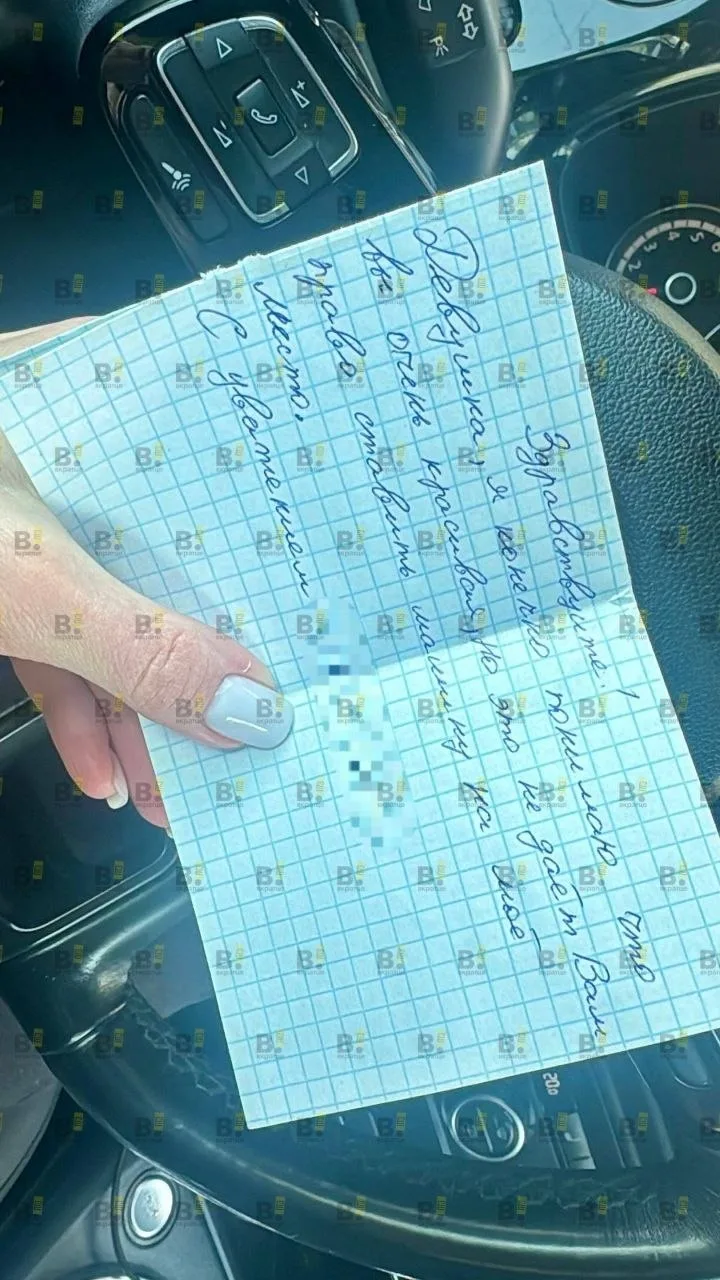 Здравствуйте!
Девушка, я конечно понимаю, что
вы очень красивая, но это не даёт Вам
право ставить машину на моё
место.
С уважением